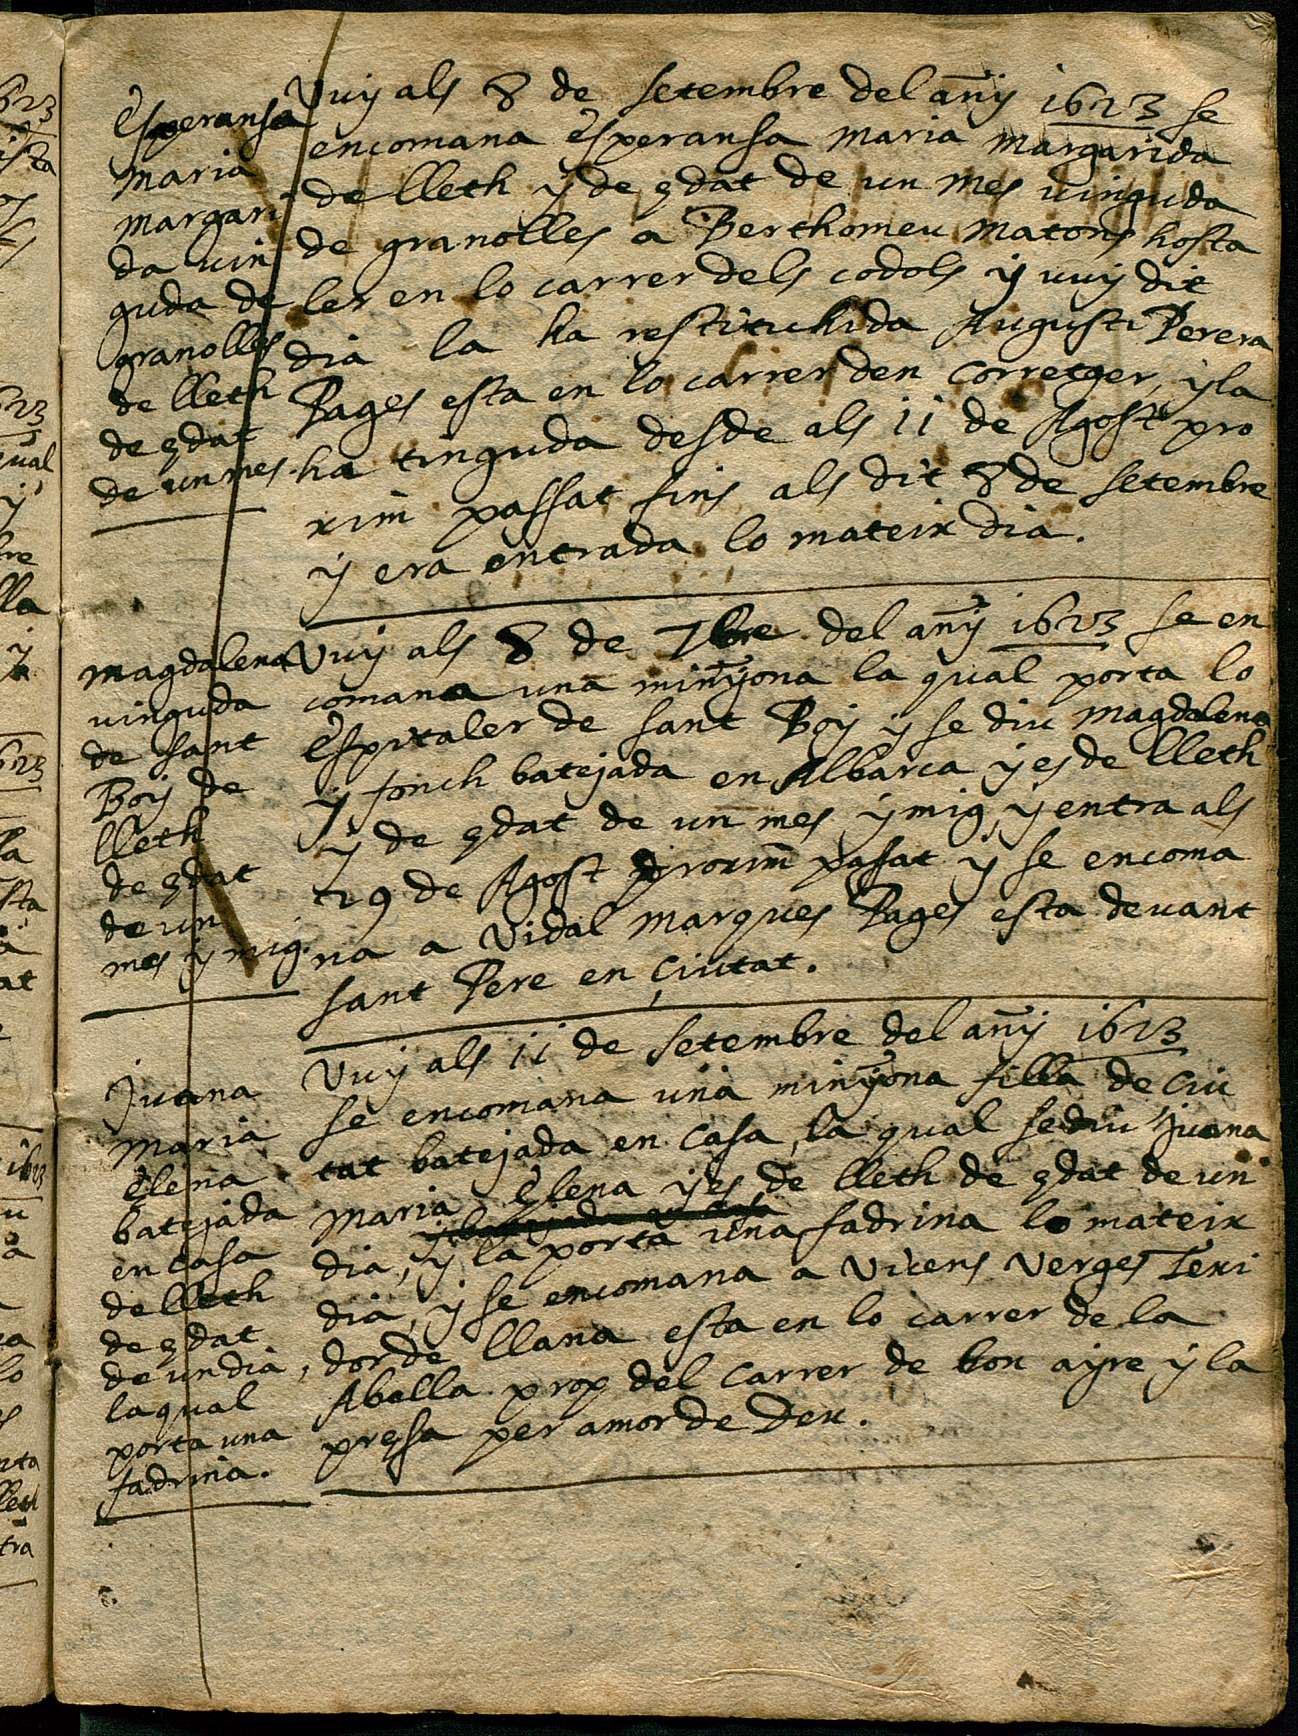 Esperansa
maria
margari
da vin
guda de
granolles
de lleth
de edat
de un mes.
Vuy als 8 de setembre del añy 1623 se
encomana Esperansa maria margarida
de lleth y de edat de un mes vinguda
de granolles a Berthomeu matons hosta
ler en lo carrer dels codols y vuy dit
dia la ha restituhida Augusti Perera
Pages esta en lo carrer den Corretger, y la
ha tinguda desde als 11 de Agost pro
xim passat fins als dit 8 de setembre
y era entrada lo mateix dia.
magdalena
vinguda
de sant
Boy de
lleth
de edat
de un
mes y mig.
Vuy als 8 de 7bre del añy 1623 se en
comana una minyona la qual porta lo
Espitaler de sant Boy y se diu magdalena
y fonch batejada en Albarca y es de lleth
y de edat de un mes y mig, y entra als
29 de Agost proxim passat y se encoma
na a Vidal marques Pages esta devant
sant Pere en Ciutat.
Juana
maria
Elena
batejada
en casa
de lleth
de edat
de un dia,
la qual
porta una
fadrina.
Vuy als 11 de setembre del añy 1623
se encomana una minyona filla de Ciu
tat batejada en casa, la qual se diu Juana
maria Elena y es de lleth de edat de un
dia, y la porta una fadrina lo mateix
dia, y se encomana a Vicens Verges Texi
dor de llana esta en lo carrer de la
Abella prop del Carrer de bon ayre y la
presa per amor de Deu.